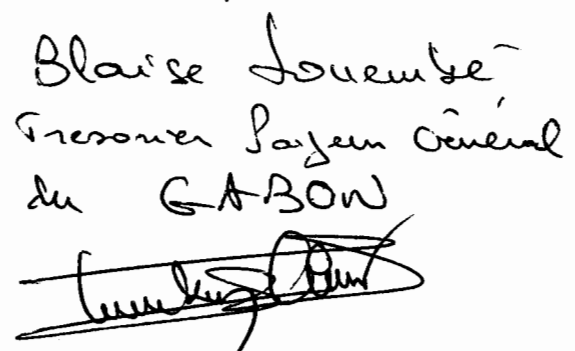 Blaise Louembé
Tresorier Payeur Général
du GABON